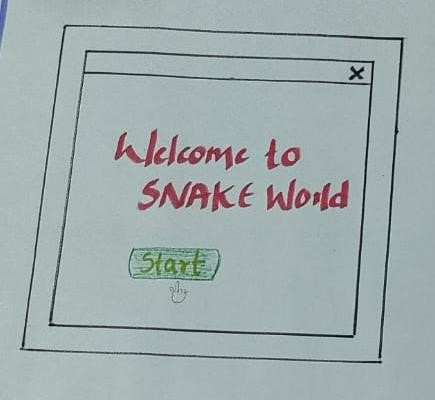 Welcome to
SNAKE World
Start